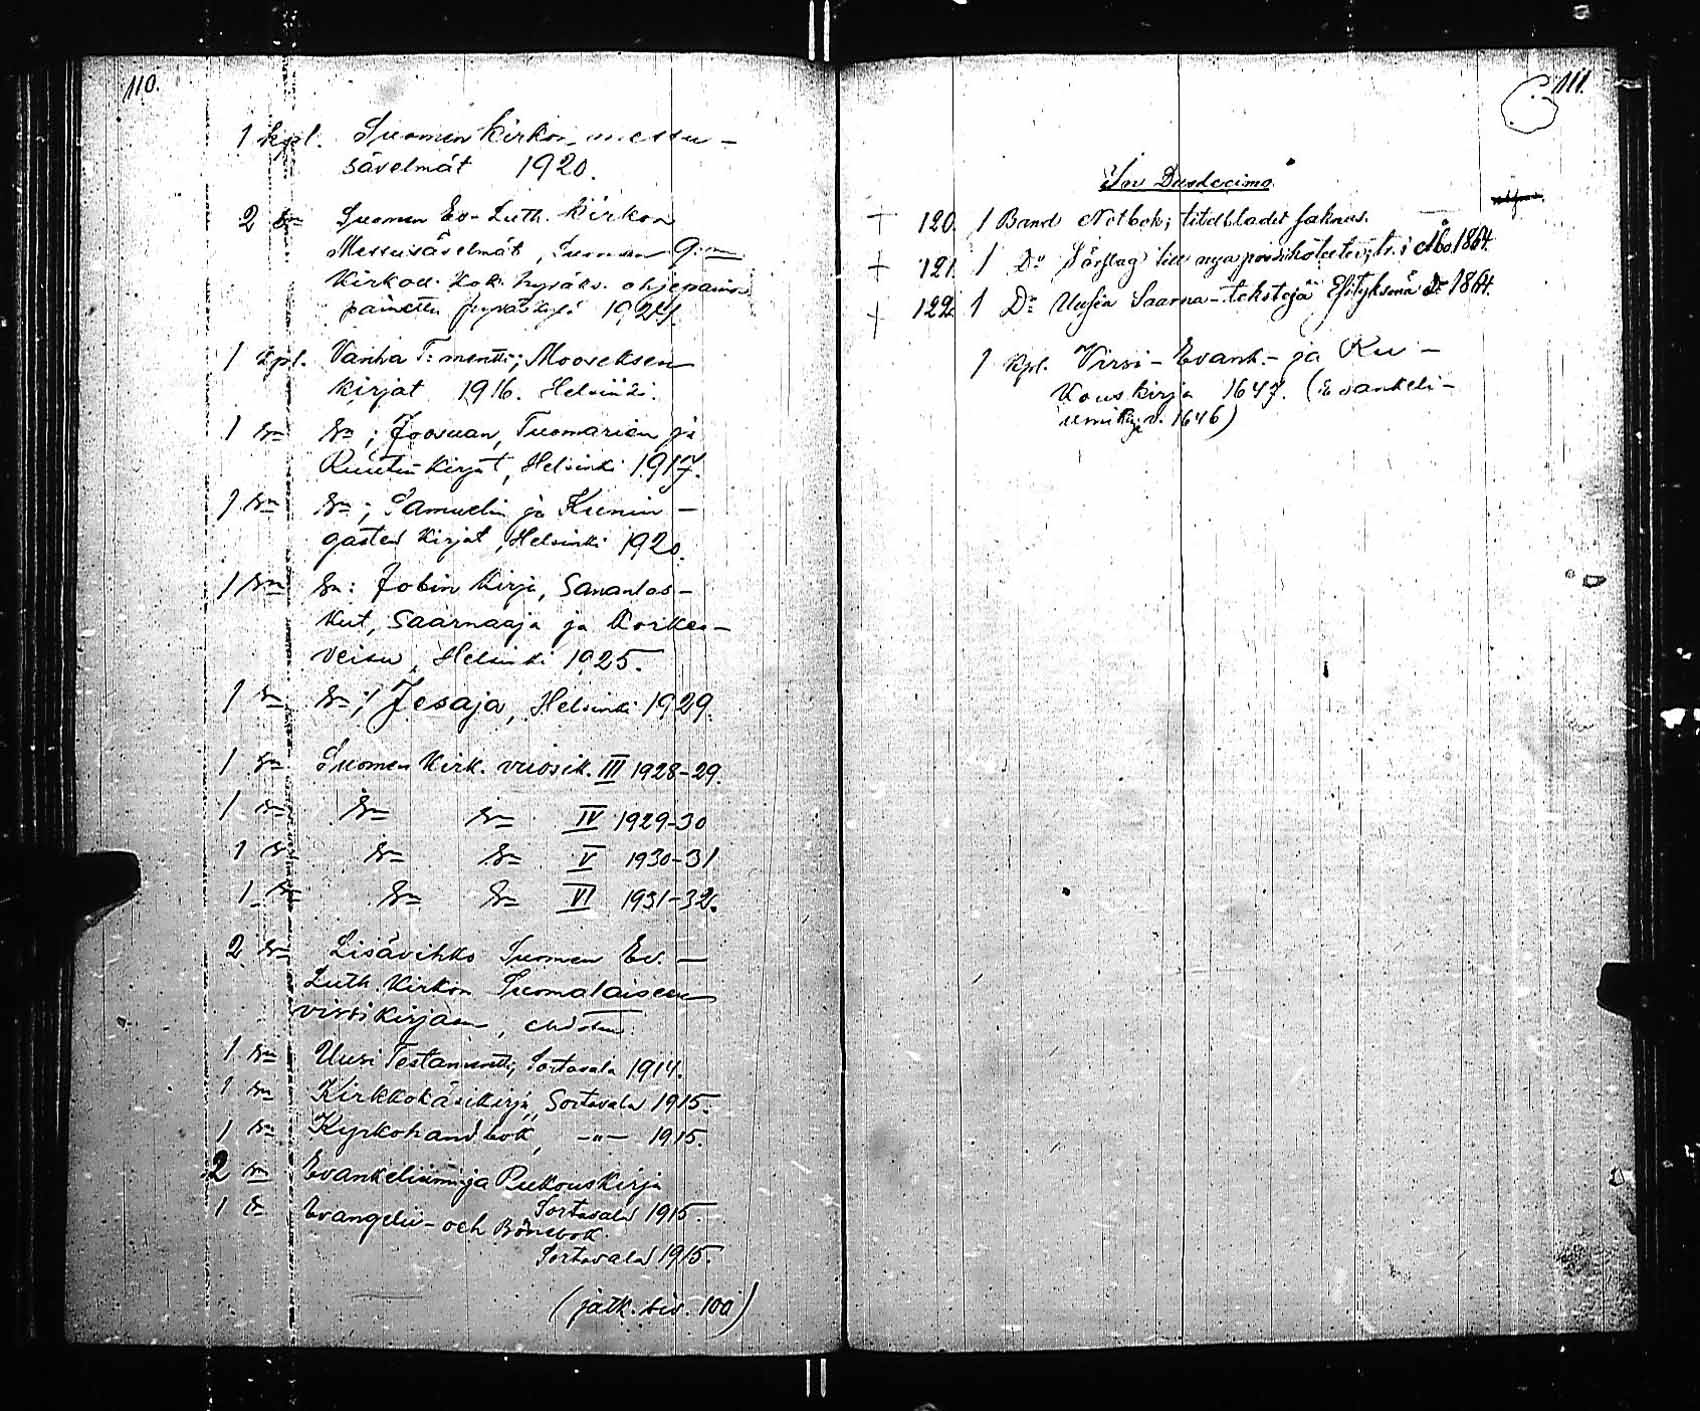 110.
1 kpl. Suomen kirkon messu-
sävelmät 1920.
2 Dn Suomen Ev-Luth. Kirkon
Messusävelmät, Suomen 9:n
Kirkoll. kok. hyväks.
painettu Jyväskylä 1924.
1 kpl. Vanha T:mentti; Mooseksen
kirjat 1916. Helsinki.
1 Dn Dn; Joosuan, Tuomarien ja
Ruutin kirjat, Helsinki 1917.
1 Dn Dn; Samuelin ja Kunin-
gasten kirjat, Helsinki 1920.
1 Dn Dn: Jobin kirja, Sananlas-
kut, Saarnaaja ja Korkea-
veisu, Helsinki 1925.
1 Dn Dn; Jesaja, Helsinki 1929.
1 Dn Suomen Kirk. vuosik. III 1928-29.
1 Dn Dn Dn IV 1929-30
1 Dn Dn Dn V 1930-31
1 Dn Dn Dn VI 1931-32.
2 Dn Lisävihko Suomen Ev.-
Luth. Kirkon Suomalaiseen
virsikirjaan,
1 Dn Uusi Testamentti, Sortavala 1914.
1 Dn Kirkkokäsikirja, Sortavala 1915.
1 Dn Kyrkohandbok, -"- 1915.
2 Dn Evankeliumi ja Rukouskirja
Sortavala 1915.
1 Dn Evangelii- och Bönebok
Sortavala 1915.
(jatk. siv. 100)
111.
In Duodecimo
120. 1 Band Notbok; titelbladet saknas.
121. 1 Do Förslag till nya tr. i Åbo 1864.
122. 1 Do Uusia Saarna-tekstejä Esityksenä Do 1864.
1 Kpl. Virsi- Evank.- ja Ru-
kouskirja 1647. (Evankeli-
umikirja v. 1646)